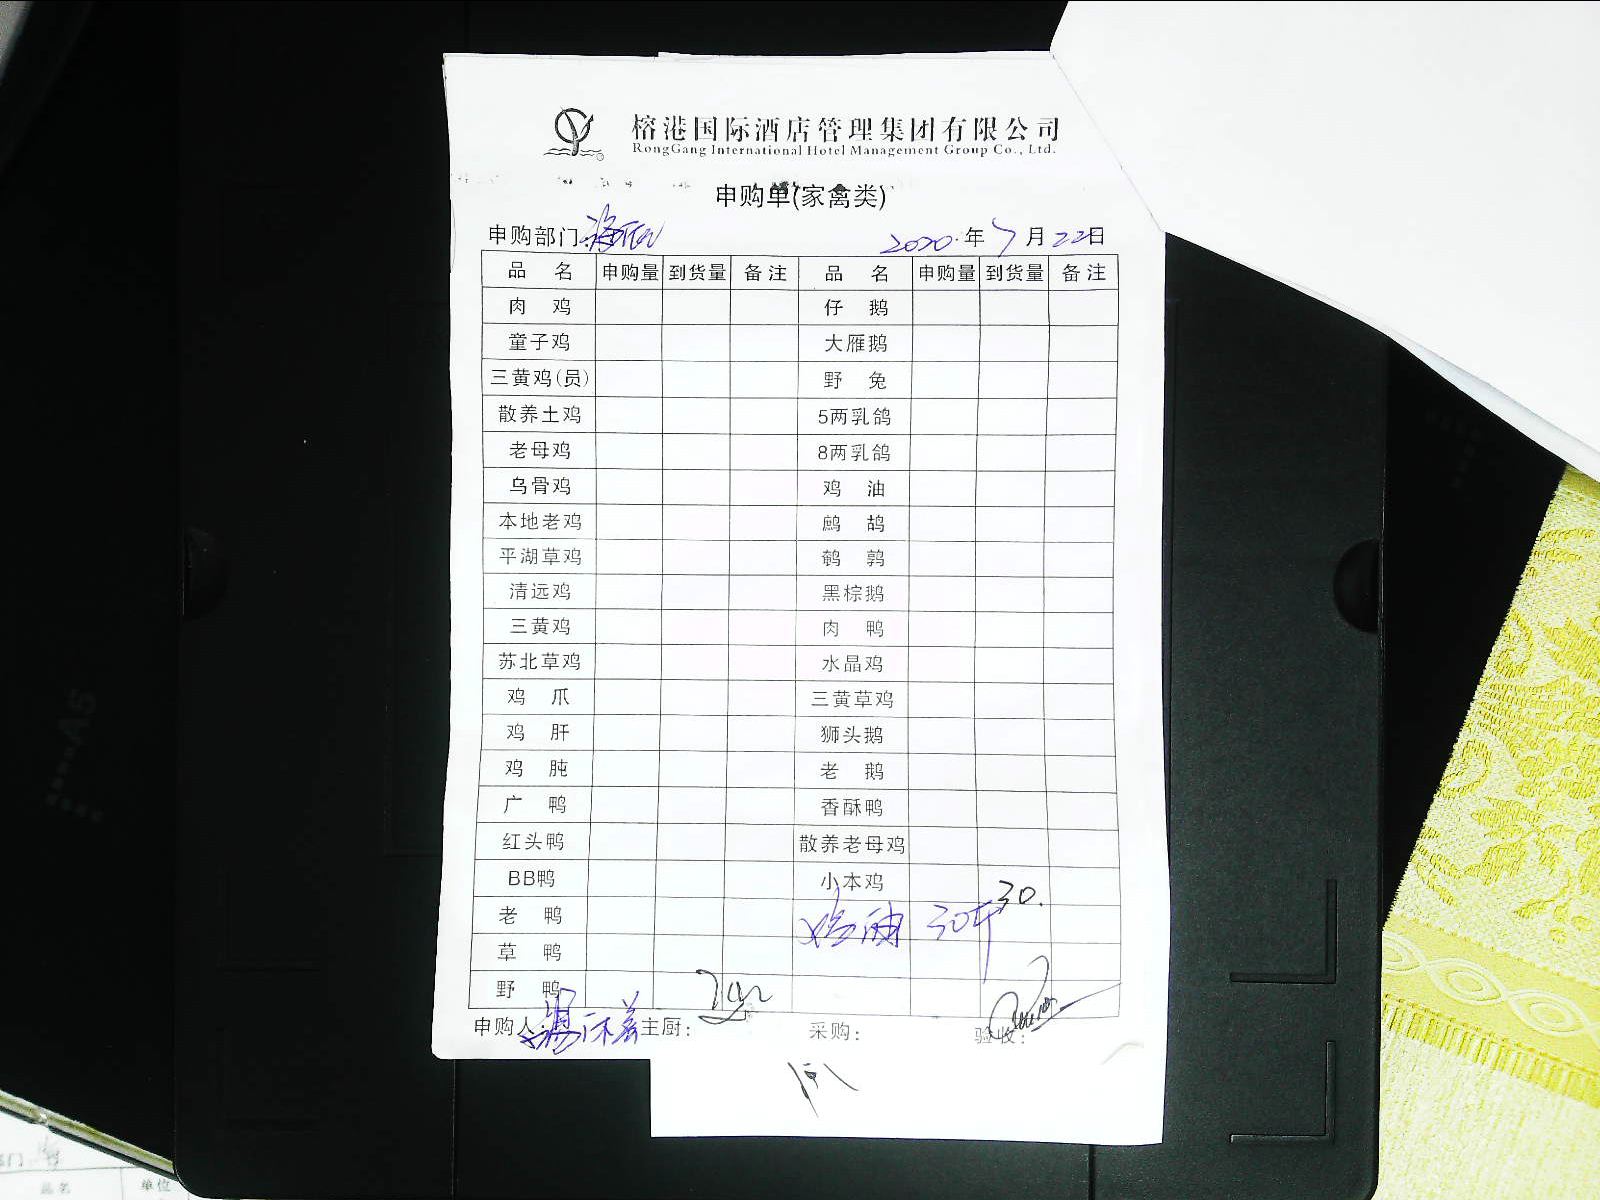 榕港国际酒店管理集团有限公司
RongGang International Hotel Management Group Co., Ltd.
申购单(家禽类)
申购部门: 2020.年7月22日
品 名 申购量 到货量 备注 品 名 申购量 到货量 备注
肉 鸡 仔 鹅
童子鸡 大雁鹅
三黄鸡(员) 野 兔
散养土鸡 5两乳鸽
老母鸡 8两乳鸽
乌骨鸡 鸡 油
本地老鸡 鹧 鸪
平湖草鸡 鹌 鹑
清远鸡 黑棕鹅
三黄鸡 肉 鸭
苏北草鸡 水晶鸡
鸡 爪 三黄草鸡
鸡 肝 狮头鹅
鸡 肫 老 鹅
广 鸭 香酥鸭
红头鸭 散养老母鸡
BB鸭 小本鸡
老 鸭 鸡油 30斤 30.
草 鸭
野 鸭
申购人: 主厨: 采购: 验收:
A5
部门
品名 单位